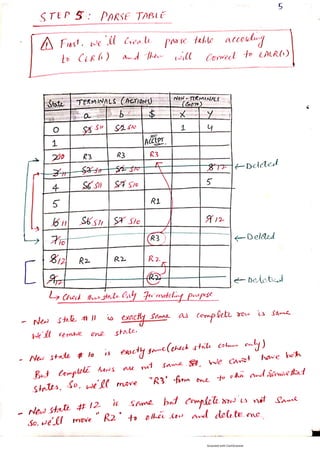 5
STEP 5: PARSE TABLE
⚠ First, we'll Create parse table according
to CLR(1) and then will Correct to LALR(1)
State TERMINALS (ACTIONS) NON-TERMINALS (GOTO)
a b $ X Y
0 S3 S11 S2 S10 1 4
1 ACCEPT
2 10 R3 R3 R3
3 11 S3 S11 S2 S10 8 12 ← Deleted
4 S6 S11 S7 S10 5
5 R1
6 11 S6 S11 S7 S10 9 12
7 10 R3 ← Deleted
8 12 R2 R2 R2
9 12 R2 ← Deleted
↳ Check state Only for matching purpose
- New state # 11 is exactly same as complete row is same
We'll remove one state.
- New state # 10 is exactly same (check state column only)
But Complete rows are not same. We can't have both
states. So, we'll move "R3" from one to other and
- New state # 12 is same but Complete row is not same
So, we'll move "R2" to other row and delete one.
Scanned with CamScanner